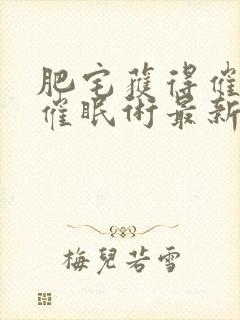 肥宅獲得催
催眠術最新
梅兒若雪